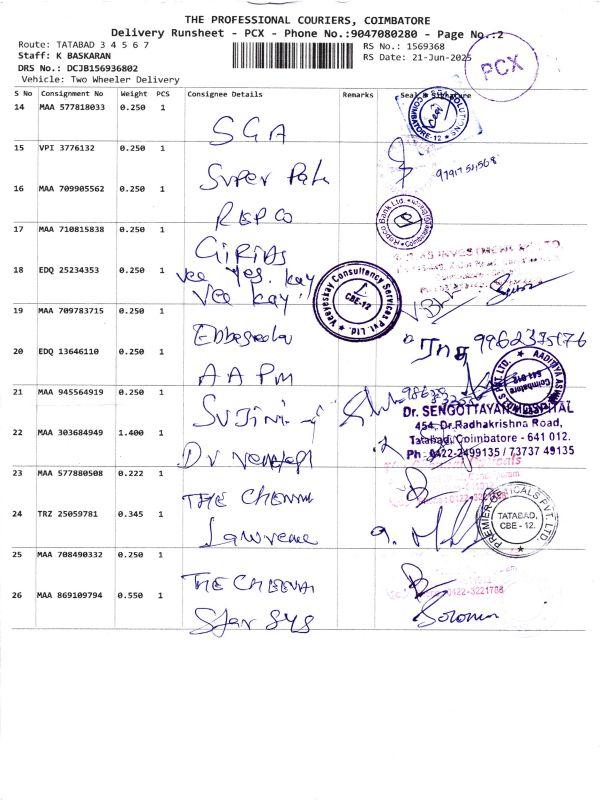 THE PROFESSIONAL COURIERS, COIMBATORE
Delivery Runsheet - PCX - Phone No.:9047080280 - Page No.:2
Route: TATABAD 3 4 5 6 7
RS No.: 1569368
Staff: K BASKARAN
RS Date: 21-Jun-2025
DRS No.: DCJB156936802
Vehicle: Two Wheeler Delivery
PCX
S No Consignment No Weight PCS Consignee Details Remarks Seal & Signature
14 MAA 577818033 0.250 1 SGA
COIMBATORE-12
15 VPI 3776132 0.250 1
16 MAA 709905562 0.250 1 REPCO
Repco Bank Ltd. Coimbatore
17 MAA 710815838 0.250 1 GIRIAS
18 EDQ 25234353 0.250 1 Vee Yes. Kay
Vee Kay
Veejeskay Consultancy Services Pvt. Ltd.
CBE-12
19 MAA 709783715 0.250 1
20 EDQ 13646110 0.250 1 AAPM
21 MAA 945564919 0.250 1
Dr. SENGOTTAYAN HOSPITAL
454, Dr.Radhakrishna Road,
22 MAA 303684949 1.400 1
Tatabad, Coimbatore - 641 012.
Ph : 0422-2499135 / 73737 49135
23 MAA 577880508 0.222 1 THE CHENNAI
24 TRZ 25059781 0.345 1 Lawrence
TATABAD, CBE - 12.
25 MAA 708490332 0.250 1 THE CHENNAI
0422-3221788
26 MAA 869109794 0.550 1 Star sys
Solomon